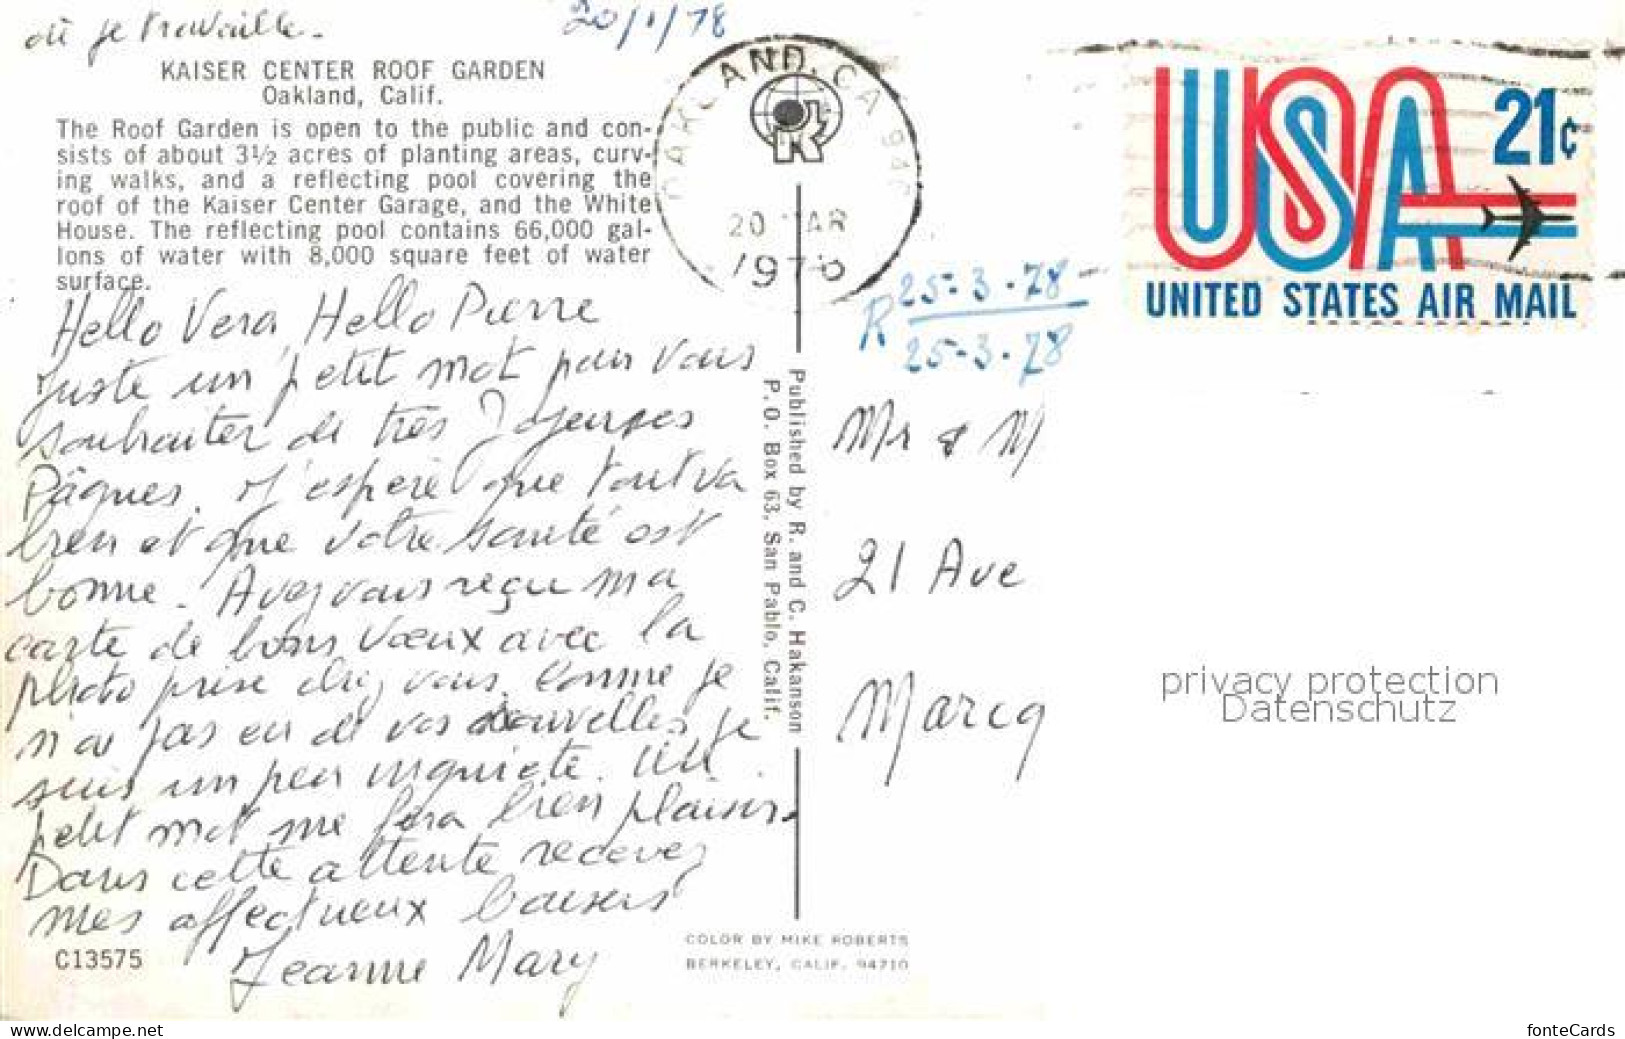 où je travaille.
20/1/78
KAISER CENTER ROOF GARDEN
Oakland, Calif.
The Roof Garden is open to the public and con-
sists of about 3½ acres of planting areas, curv-
ing walks, and a reflecting pool covering the
roof of the Kaiser Center Garage, and the White
House. The reflecting pool contains 66,000 gal-
lons of water with 8,000 square feet of water
surface.
Hello Vera, Hello Pierre
Juste un petit mot pour vous
souhaiter de très Joyeuses
Pâques. J'espère que tout va
bien et que votre santé est
bonne. Avez vous reçu ma
carte de bons vœux avec la
photo prise chez vous. Comme je
n'ai pas eu de vos nouvelles, je
suis un peu inquiète. Un
petit mot me fera bien plaisir.
Dans cette attente recevez
mes affectueux baisers
Jeanne Mary
C13575
OAKLAND, CA 946
20 MAR
197
USA 21¢
UNITED STATES AIR MAIL
R 25-3-78
25-3-78
Published by R. and C. Hakanson
P. O. Box 63, San Pablo, Calif.
Mr & M
21 Ave
Marcq
COLOR BY MIKE ROBERTS
BERKELEY, CALIF. 94710
privacy protection
Datenschutz
www.delcampe.net
fonteCards